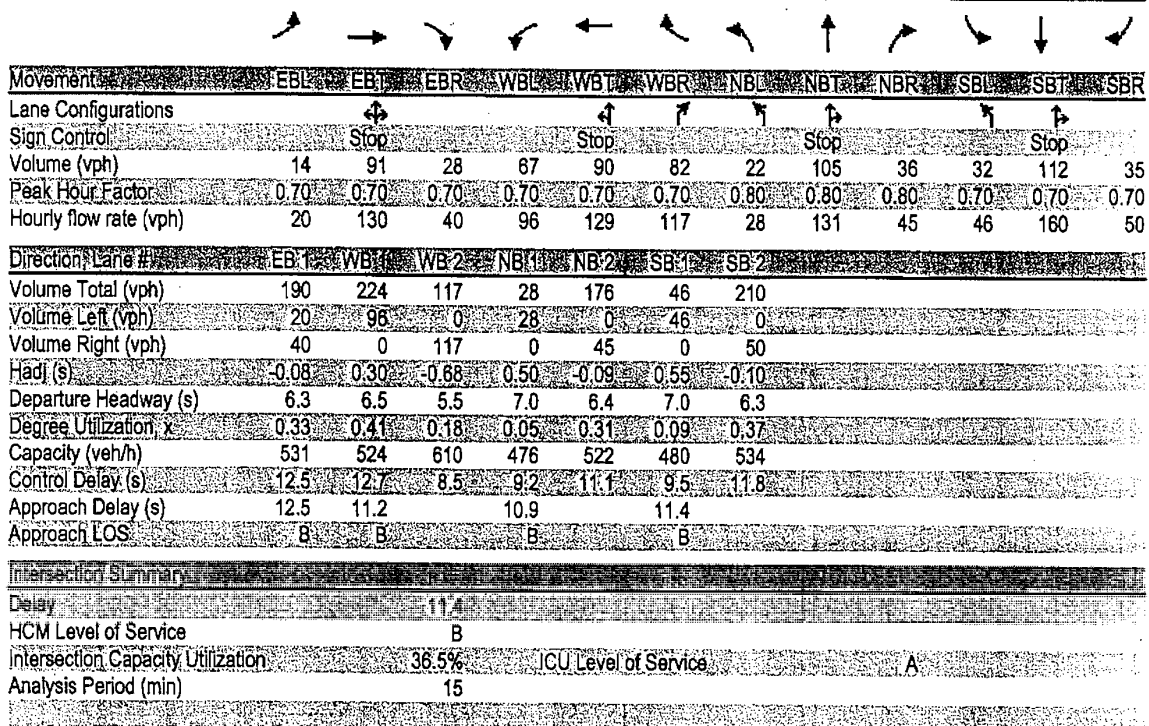 Movement EBL EBT EBR WBL WBT WBR NBL NBT NBR SBL SBT SBR
Lane Configurations
Sign Control Stop Stop Stop Stop
Volume (vph) 14 91 28 67 90 82 22 105 36 32 112 35
Peak Hour Factor 0.70 0.70 0.70 0.70 0.70 0.70 0.80 0.80 0.80 0.70 0.70 0.70
Hourly flow rate (vph) 20 130 40 96 129 117 28 131 45 46 160 50
Direction, Lane # EB 1 WB 1 WB 2 NB 1 NB 2 SB 1 SB 2
Volume Total (vph) 190 224 117 28 176 46 210
Volume Left (vph) 20 96 0 28 0 46 0
Volume Right (vph) 40 0 117 0 45 0 50
Hadj (s) -0.08 0.30 -0.68 0.50 -0.09 0.55 -0.10
Departure Headway (s) 6.3 6.5 5.5 7.0 6.4 7.0 6.3
Degree Utilization, x 0.33 0.41 0.18 0.05 0.31 0.09 0.37
Capacity (veh/h) 531 524 610 476 522 480 534
Control Delay (s) 12.5 12.7 8.5 9.2 11.1 9.5 11.8
Approach Delay (s) 12.5 11.2 10.9 11.4
Approach LOS B B B B
Intersection Summary
Delay 11.4
HCM Level of Service B
Intersection Capacity Utilization 36.5% ICU Level of Service A
Analysis Period (min) 15